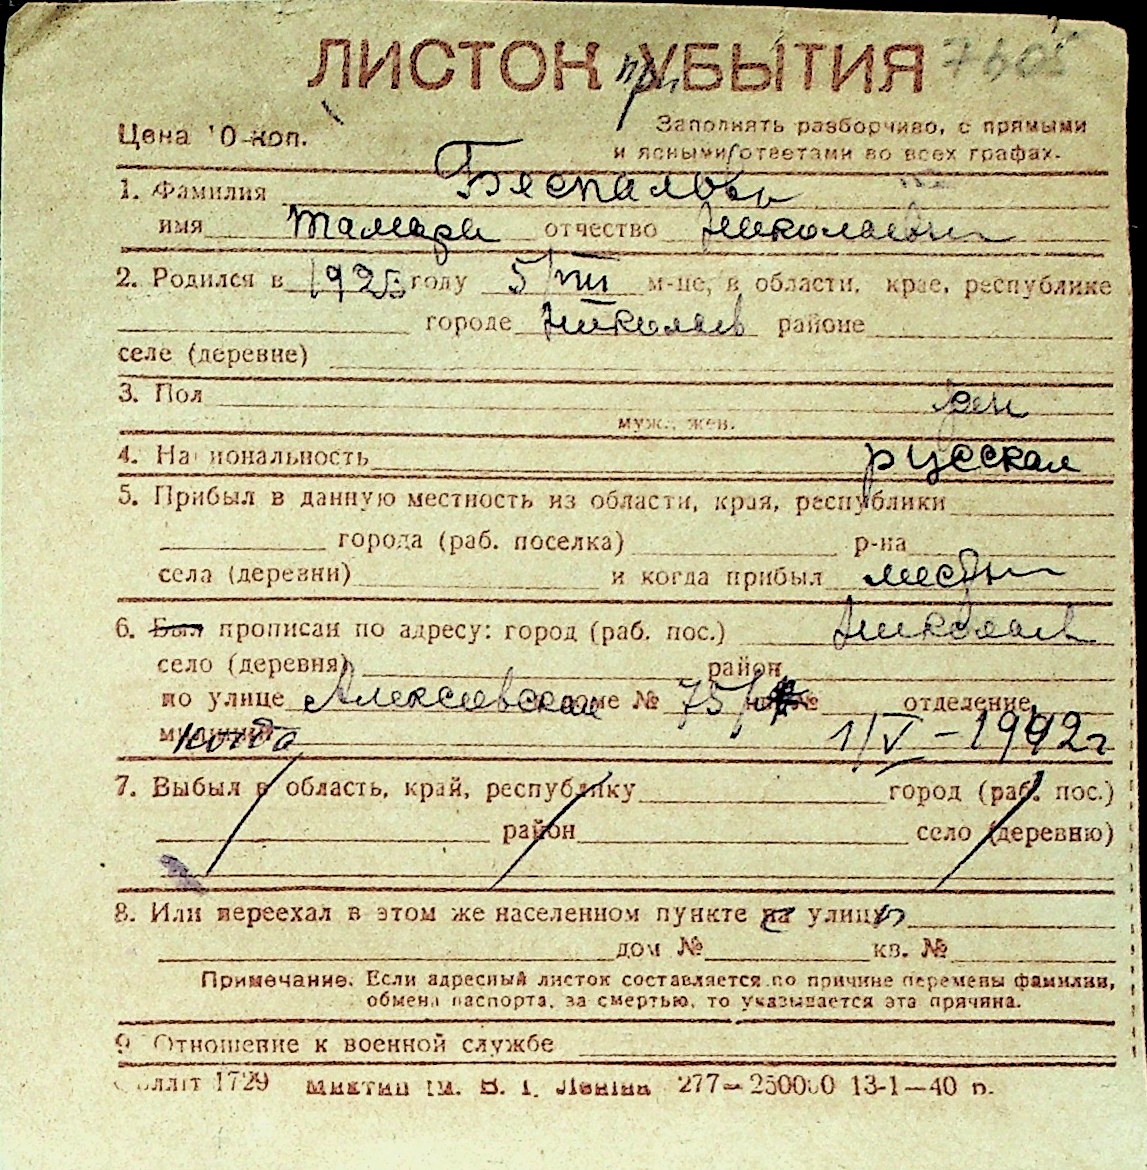 ЛИСТОК УБЫТИЯ при 7605
Цена 10 коп.
Заполнять разборчиво, с прямыми
и ясными ответами во всех графах.
1. Фамилия Беспалова
имя Тамара отчество Николаевна
2. Родился в 1925 году 5/VIII м-це, в области, крае, республике
городе Николаев районе
селе (деревне)
3. Пол жен
муж., жен.
4. Национальность русская
5. Прибыл в данную местность из области, края, республики
города (раб. поселка) р-на
села (деревни) и когда прибыл местн
6. Был прописан по адресу: город (раб. пос.) Николаев
село (деревня) район
по улице Алексеевская доме № 75/ кв. № отделение
милиции когда 1/V-1942г
7. Выбыл в область, край, республику город (раб. пос.)
район село (деревню)
8. Или переехал в этом же населенном пункте на улицу
дом № кв. №
Примечание. Если адресный листок составляется по причине перемены фамилии,
обмена паспорта, за смертью, то указывается эта причина.
9. Отношение к военной службе
1729 Миктип ім. В. І. Леніна 277—250000 13-1—40 р.